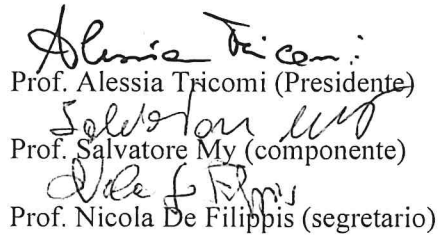 Alessia Tricomi
Prof. Alessia Tricomi (Presidente)
Salvatore My
Prof. Salvatore My (componente)
Nicola De Filippis
Prof. Nicola De Filippis (segretario)